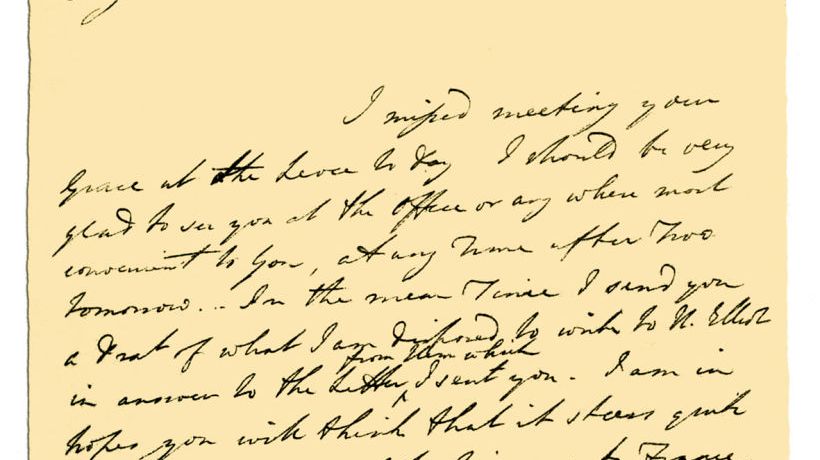 I missed meeting your
Grace at the Levee to Day I should be very
glad to see you at the Office or any where most
convenient to You, at any Time after Two
tomorrow... In the mean Time I send you
a Drat of what I am disposed to write to H. Elliot
from him which
in answer to the Letter ‸ I sent you. I am in
hopes you will think that it steers quite
to France